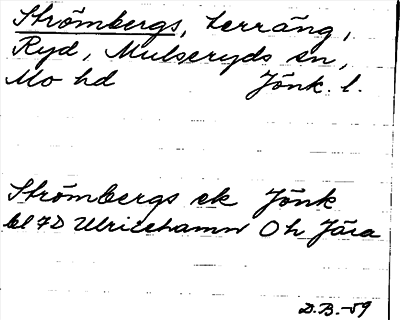 Strömbergs, terräng,
Ryd, Mulseryds sn,
Mo hd Jönk. l.
Strömbergs ek Jönk
bl 7D Ulricehamn Oh Jära
D.B.-59